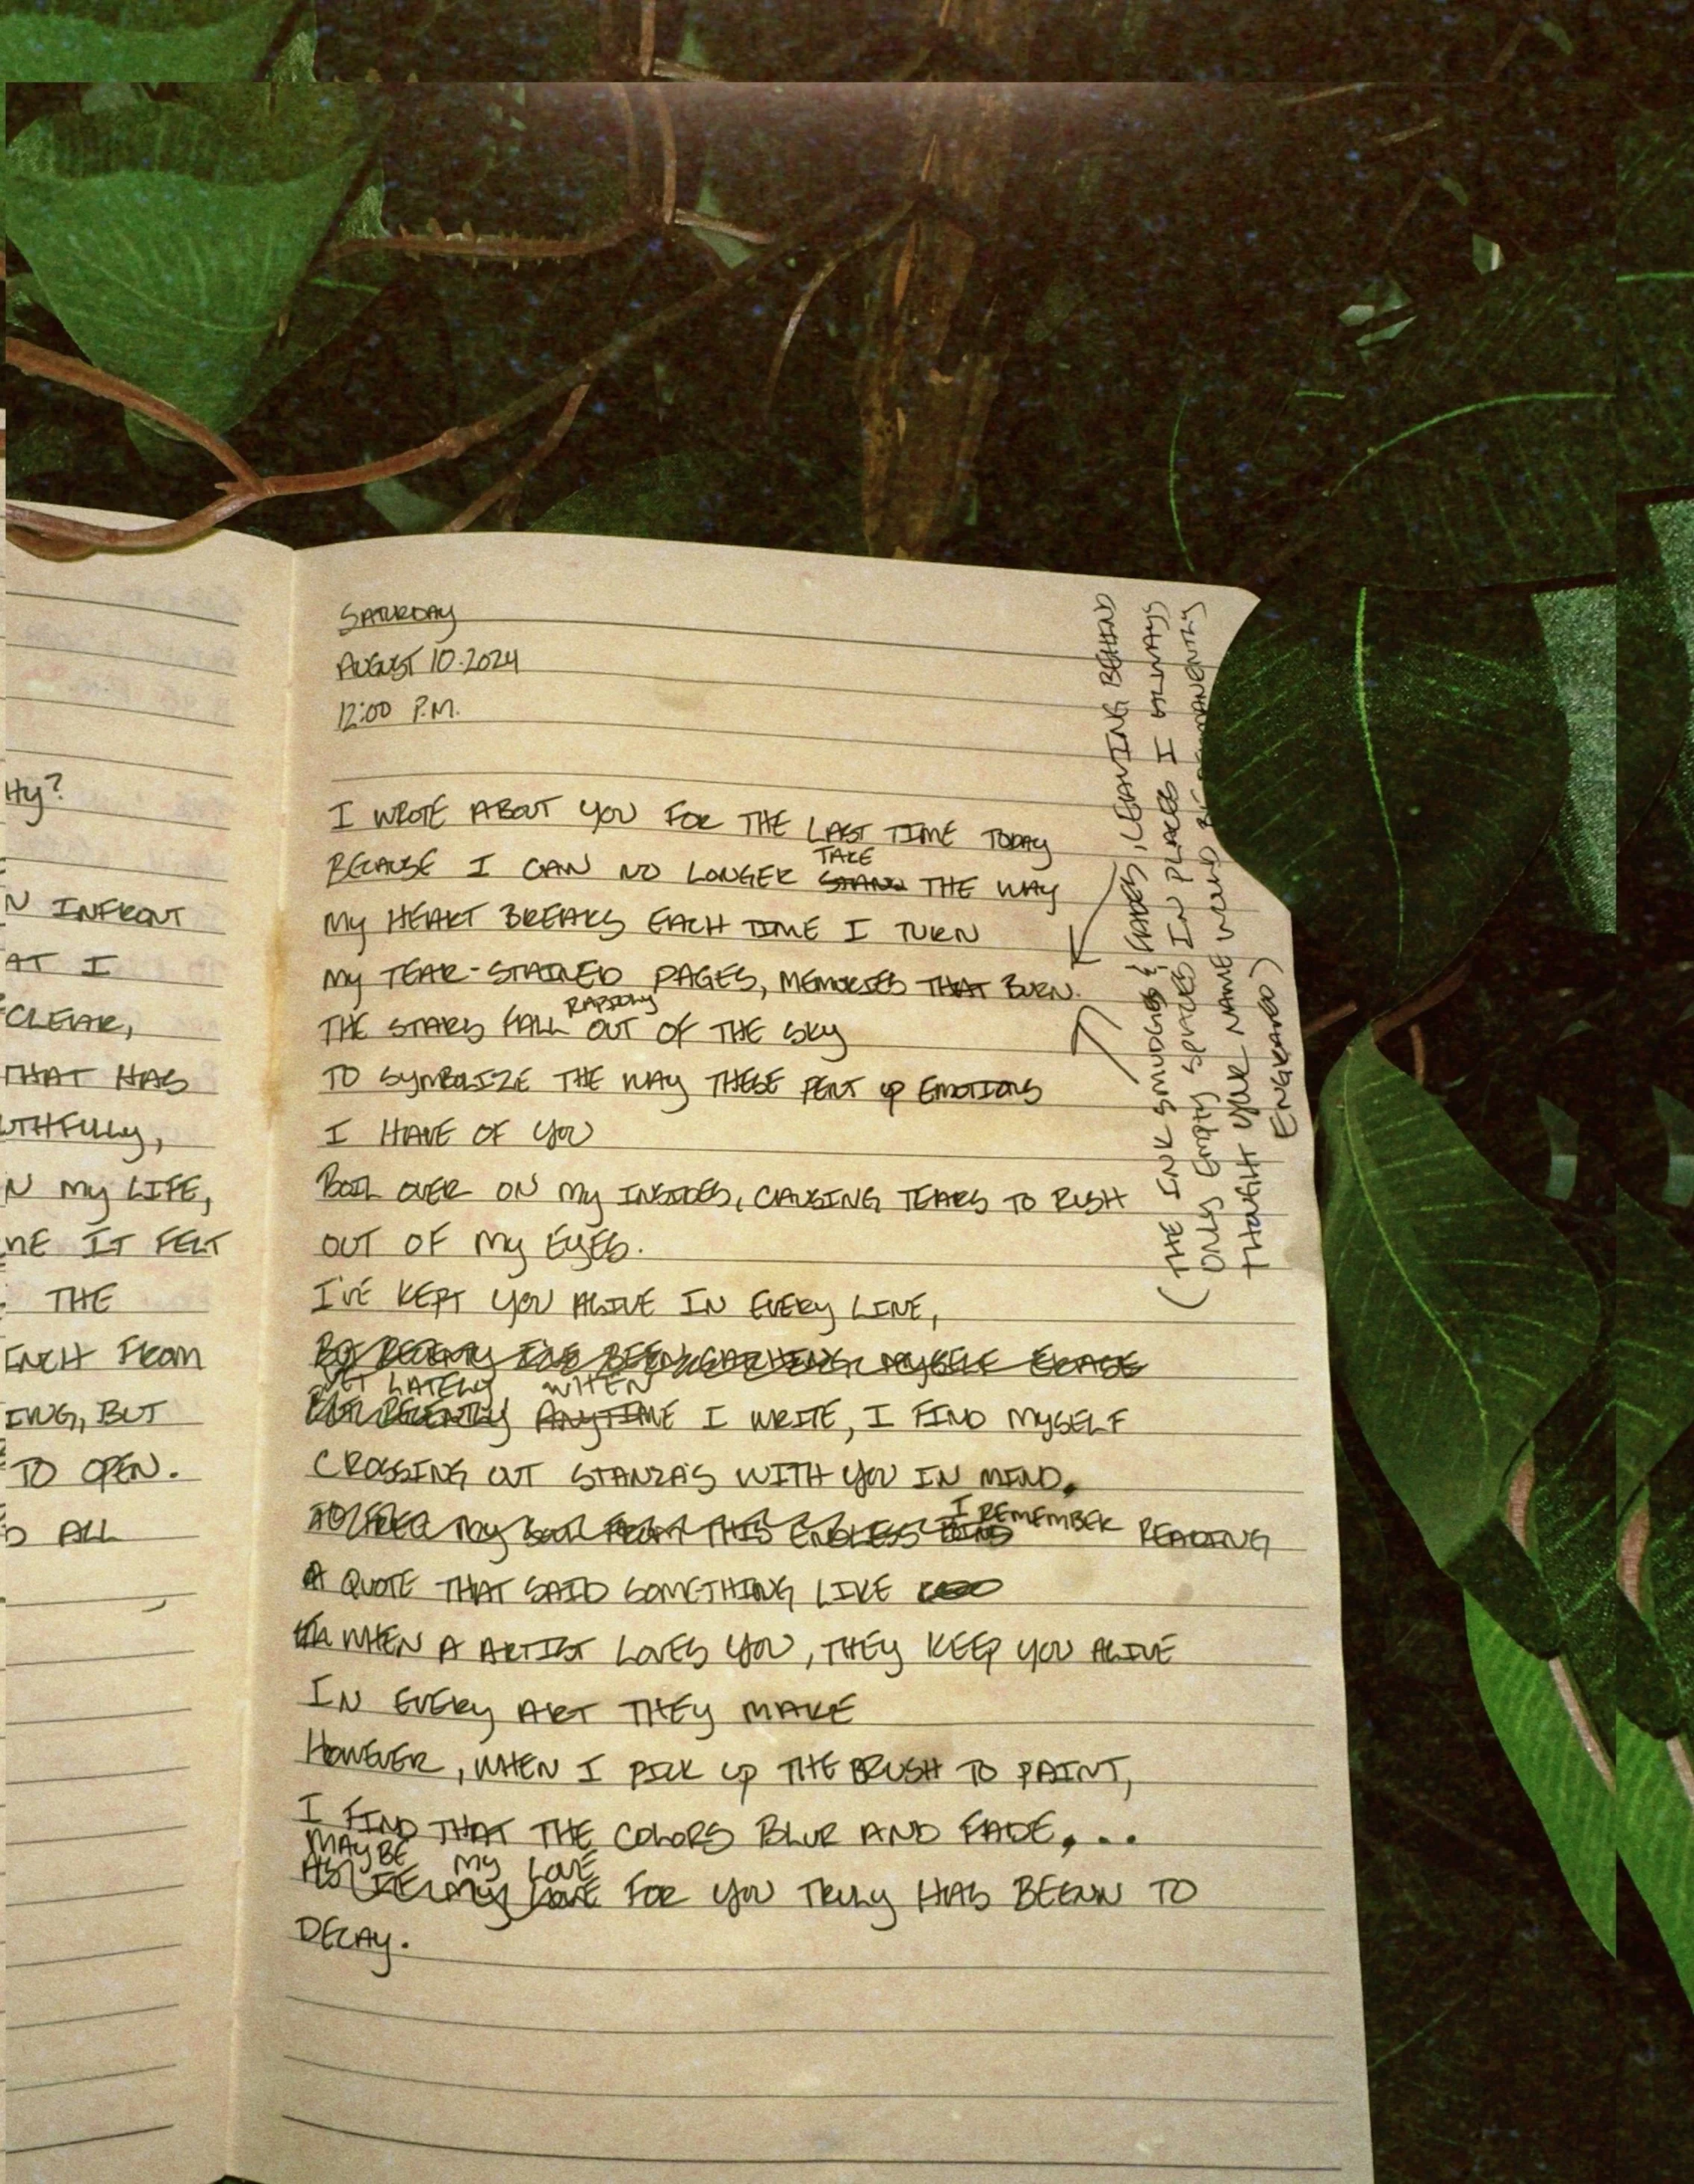 Hy?
N INFRONT
AT I
CLEAR,
THAT HAS
UTHFULLY,
N MY LIFE,
ME IT FELT
THE
INCH FROM
ING, BUT
TO OPEN.
D ALL
SATURDAY
AUGUST 10.2024
12:00 P.M.
I WROTE ABOUT YOU FOR THE LAST TIME TODAY
TAKE
BECAUSE I CAN NO LONGER STAND THE WAY
MY HEART BREAKS EACH TIME I TURN
MY TEAR-STAINED PAGES, MEMORIES THAT BURN.
RAPIDLY
THE STARS FALL OUT OF THE SKY
TO SYMBOLIZE THE WAY THESE PENT UP EMOTIONS
I HAVE OF YOU
BOIL OVER ON MY INSIDES, CAUSING TEARS TO RUSH
OUT OF MY EYES.
I'VE KEPT YOU ALIVE IN EVERY LINE,
BUT RECENTLY I'VE BEEN CATCHING MYSELF ERASE
YET LATELY, WHEN
BUT RECENTLY ANYTIME I WRITE, I FIND MYSELF
CROSSING OUT STANZA'S WITH YOU IN MIND.
I REMEMBER
TO FREE MY SOUL FROM THIS ENDLESS BIND READING
A QUOTE THAT SAID SOMETHING LIKE
WHEN A ARTIST LOVES YOU, THEY KEEP YOU ALIVE
IN EVERY ART THEY MAKE
HOWEVER, WHEN I PICK UP THE BRUSH TO PAINT,
I FIND THAT THE COLORS BLUR AND FADE, ...
MAYBE MY LOVE
AS IF MY LOVE FOR YOU TRULY HAS BEENN TO
DECAY.
(THE INK SMUDGES & FADES, LEAVING BEHIND
ONLY EMPTY SPACES IN PLACES I ALWAYS
THOUGHT YOUR NAME WOULD BE PERMANENTLY
ENGRAVED)